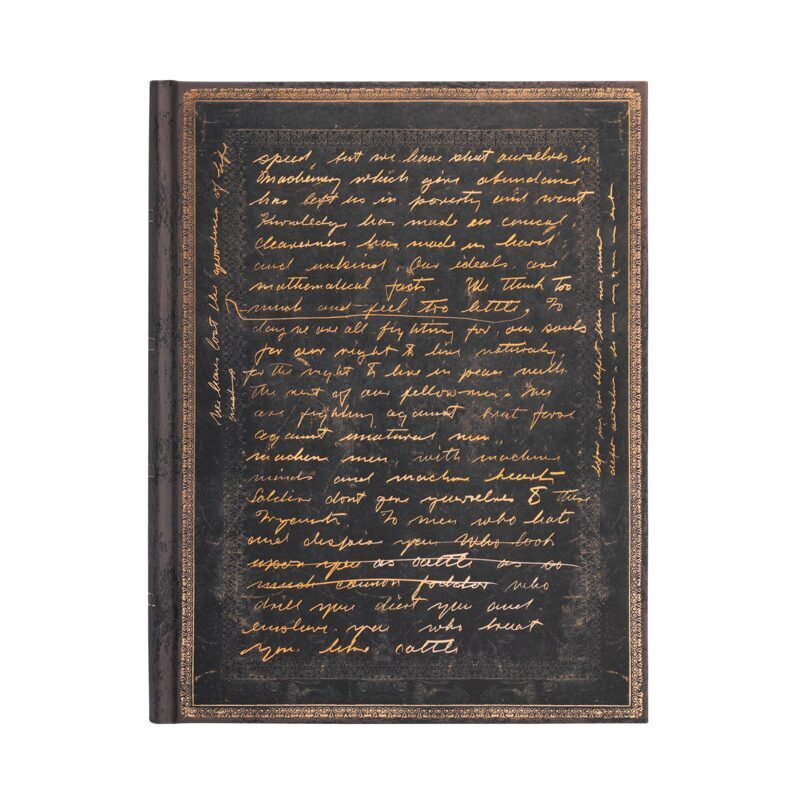 speed, but we have shut ourselves in
Machinery which give abundance
has left us in poverty and want
Knowledge has made us cynical
cleaverness has made us hard
and unkind. Our ideals are
mathematical facts We think too
much and feel too little, To
day we are all fighting for our souls
for our right to live naturaly,
for the right to live in peace with
the rest of our fellow men. We
are fighting against brut force
against unatural men,
machen men, with machine
minds and machine hearts
Soldiers dont give yourselves to these
To men who hate
and despise you who look
upon you as cattle as so
much cannon fodder who
drill you diet you and
enslave you who treat
you like cattle
We have lost the goodness of life